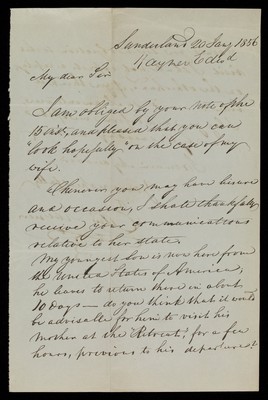 Sunderland 20 Jany 1856
My dear Sir
I am obliged by your note of the
15 inst, and pleased that you can
"look hopefully" on the case of my
wife.
Whenever you may have leisure
and occasion, I shall thankfully
receive your communications
relative to her state.
My youngest Son is now here from
the United States of America,
he leaves to return there in about
10 days — do you think that it would
be advisable for him to visit his
mother at the "Retreat", for a few
hours, previous to his departure?